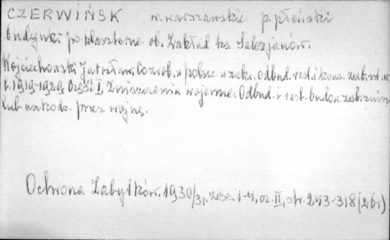 CZERWIŃSK w. warszawskie p. płoński
budynki poklasztorne ob. Zakład ks. Salezjanów.
Wojciechowski Jarosław. Co zrob. w Polsce w zakr. odbud. rest. i kons. zab. szt. w
l. 1919-1929. Część I. Zniszczenia wojenne. Odbud. i rest. budow. zabr. zniszcz.
lub uszkodz. przez wojnę.
Ochrona Zabytków. 1930/31, zesz. 1-4, cz. II, str. 243-318 (261)